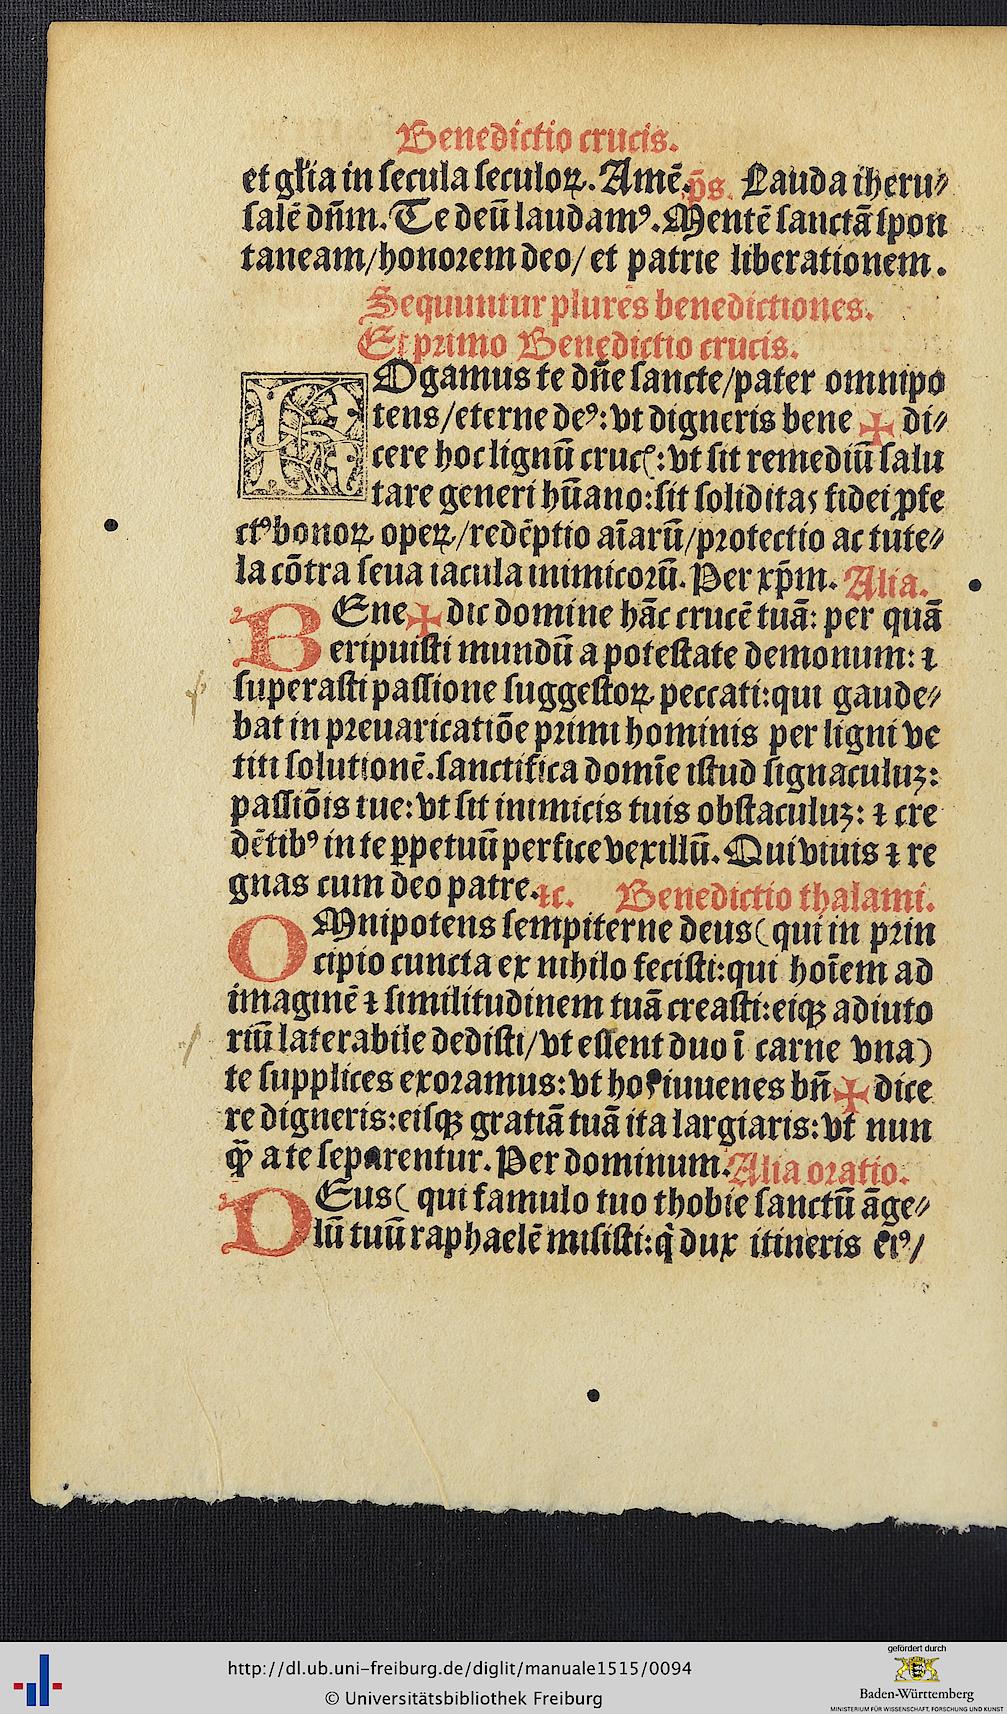 Benedictio crucis.
et gl̃ia in secula seculoꝝ. Amẽ. p̃s. Lauda iheru⸗
salẽ dñm. Te deũ laudamꝰ. Mentẽ sanctã spon
taneam/honorem deo/ et patrie liberationem.
Sequuntur plures benedictiones.
Et primo Benedictio crucis.
ROgamus te dñe sancte/pater omnipo
tens/eterne deꝰ: vt digneris bene ✠ di⸗
cere hoc lignũ crucꝭ: vt sit remediũ salu
tare generi hũano: sit soliditas fidei ꝓfe
ctꝰ bonoꝝ opeꝝ/redẽptio aĩarũ/protectio ac tute⸗
la cõtra seua iacula inimicorũ. Per xp̃m. Alia.
BEne ✠ dic domine hãc crucẽ tuã: per quã
eripuisti mundũ a potestate demonum: ⁊
superasti passione suggestoꝝ peccati: qui gaude⸗
bat in preuaricatiõe primi hominis per ligni ve
titi solutionẽ. sanctifica domĩe istud signaculuꝫ:
passiõis tue: vt sit inimicis tuis obstaculuꝫ: ⁊ cre
dẽtibꝰ in te ꝑpetuũ perfice vexillũ. Qui viuis ⁊ re
gnas cum deo patre. ⁊c. Benedictio thalami.
OMnipotens sempiterne deus (qui in prin
cipio cuncta ex nihilo fecisti: qui hoĩem ad
imaginẽ ⁊ similitudinem tuã creasti: eiqꝫ adiuto
riũ laterabile dedisti/vt essent duo ĩ carne vna)
te supplices exoramus: vt hos iuuenes bñ ✠ dice
re digneris: eisqꝫ gratiã tuã ita largiaris: vt nun
ꝙ̃ a te separentur. Per dominum. Alia oratio.
DEus (qui famulo tuo thobie sanctũ ãge⸗
lũ tuũ raphaelẽ misisti: q̇ dux itineris eĩꝰ/
http://dl.ub.uni-freiburg.de/diglit/manuale1515/0094
© Universitätsbibliothek Freiburg
gefördert durch
Baden-Württemberg
MINISTERIUM FÜR WISSENSCHAFT, FORSCHUNG UND KUNST